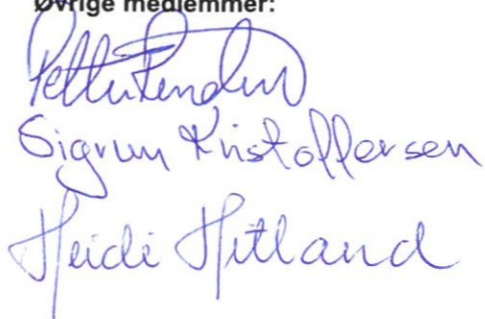 Øvrige medlemmer:
Sigrun Kristoffersen
Heidi Hetland